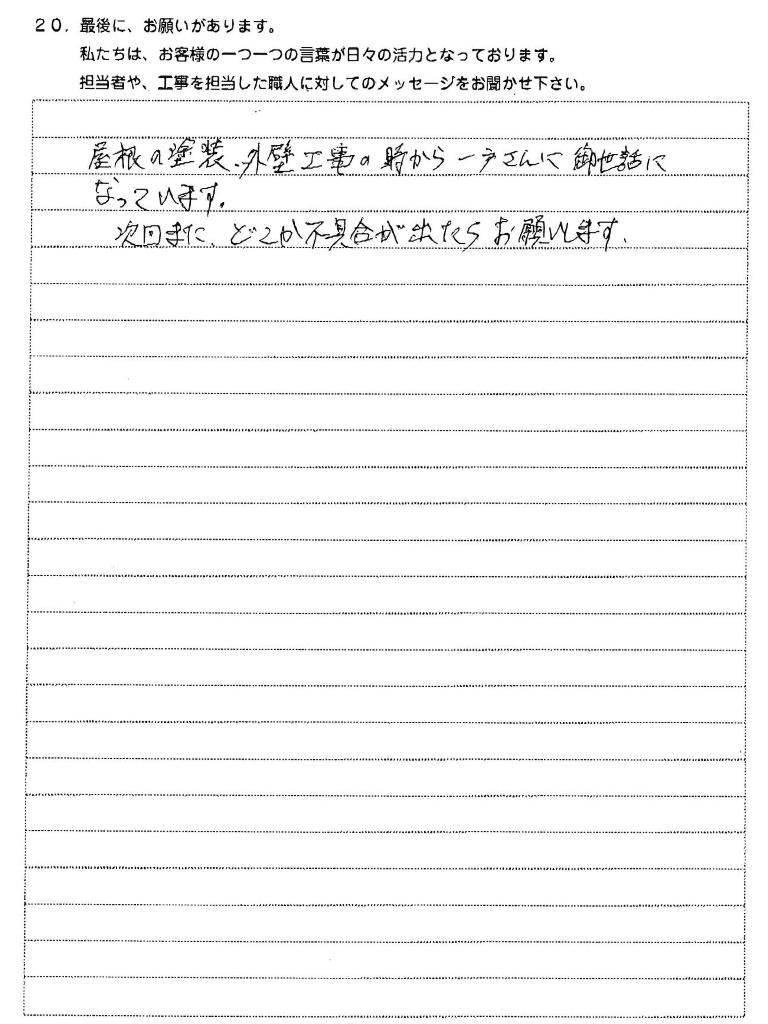 20. 最後に、お願いがあります。
私たちは、お客様の一つ一つの言葉が日々の活力となっております。
担当者や、工事を担当した職人に対してのメッセージをお聞かせ下さい。
屋根の塗装、外壁工事の時から一戸さんに御世話に
なっています。
次回また、どこか不具合が出たらお願いします。